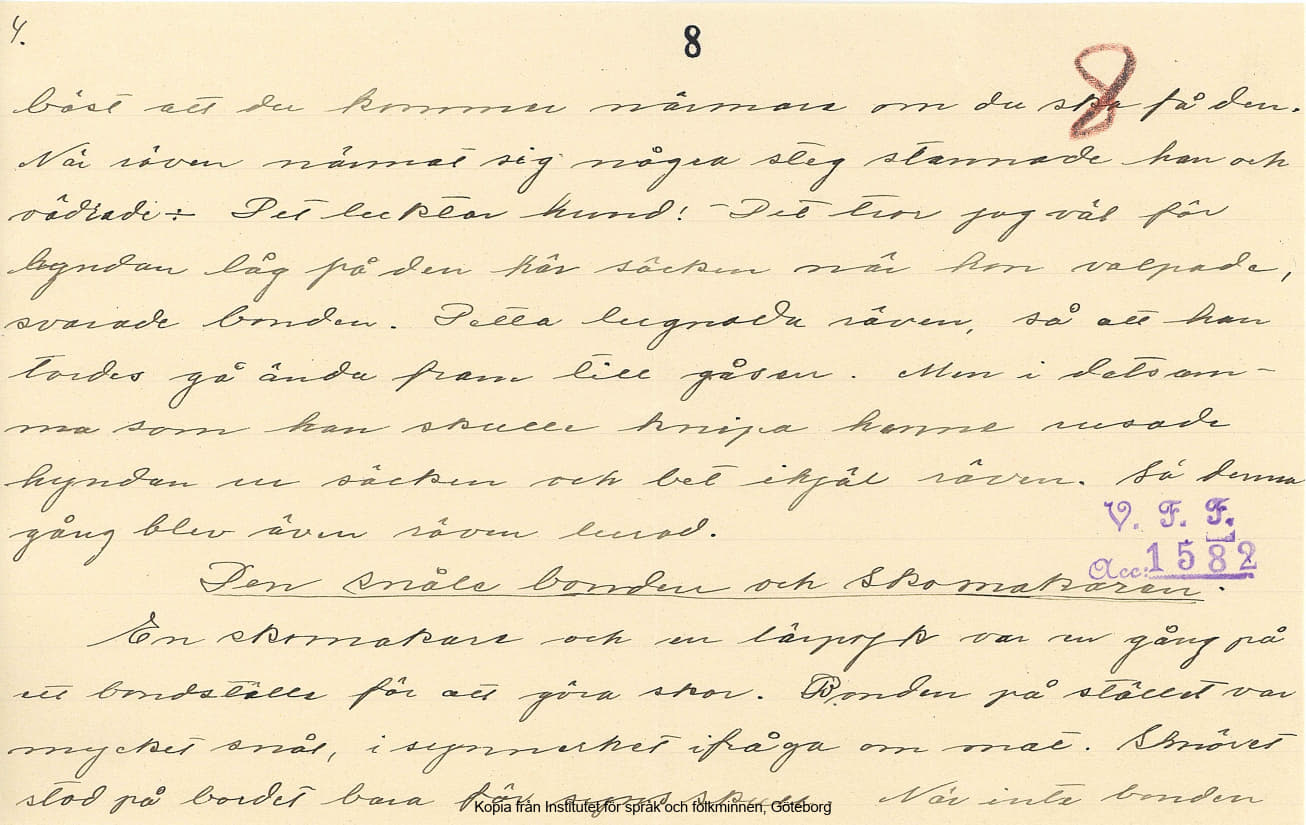 4.
8
8
bäst att du kommer närmare om du ska få den.
När räven närmat sig några steg stannade han och
vädrade: Det luktar hund! – Det tror jag väl för
hyndan låg på den här säcken när hon valpade,
svarade bonden. Detta lugnade räven, så att han
tordes gå ända fram till gåsen. Men i detsam-
ma som han skulle knipa henne rusade
hyndan ur säcken och bet ihjäl räven. Så denna
gång blev även räven lurad.
V. F. F.
Acc: 1582
Den snåle bonden och Skomakaren.
En skomakare och en lärpojk var en gång på
ett bondställe för att göra skor. Bonden på stället var
mycket snål, i synnerhet ifråga om mat. Smöret
stod på bordet bara för syns skull. När inte bonden
Kopia från Institutet för språk och folkminnen, Göteborg